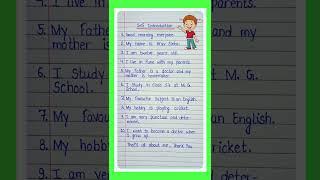 Self Introduction
1. Good morning everyone.
2. My Father is
3. I am twelve years old.
4. I live in Pune with my parents.
5. My Father is a doctor and my
mother is homemaker.
6. I Study in Class Six at M. G.
School.
7. My favourite Subject is an English.
8. My hobby is playing cricket.
9. I am very punctual and deter-
mined.
10. I want to become a doctor when
I grow up.
That's all about me, thank you.
4. I live in
parents.
5. My Father
my
mother is
6. I Study
G.
School.
7. My Favou
an English.
8. My hobb
cricket.
9. I am very
deter-